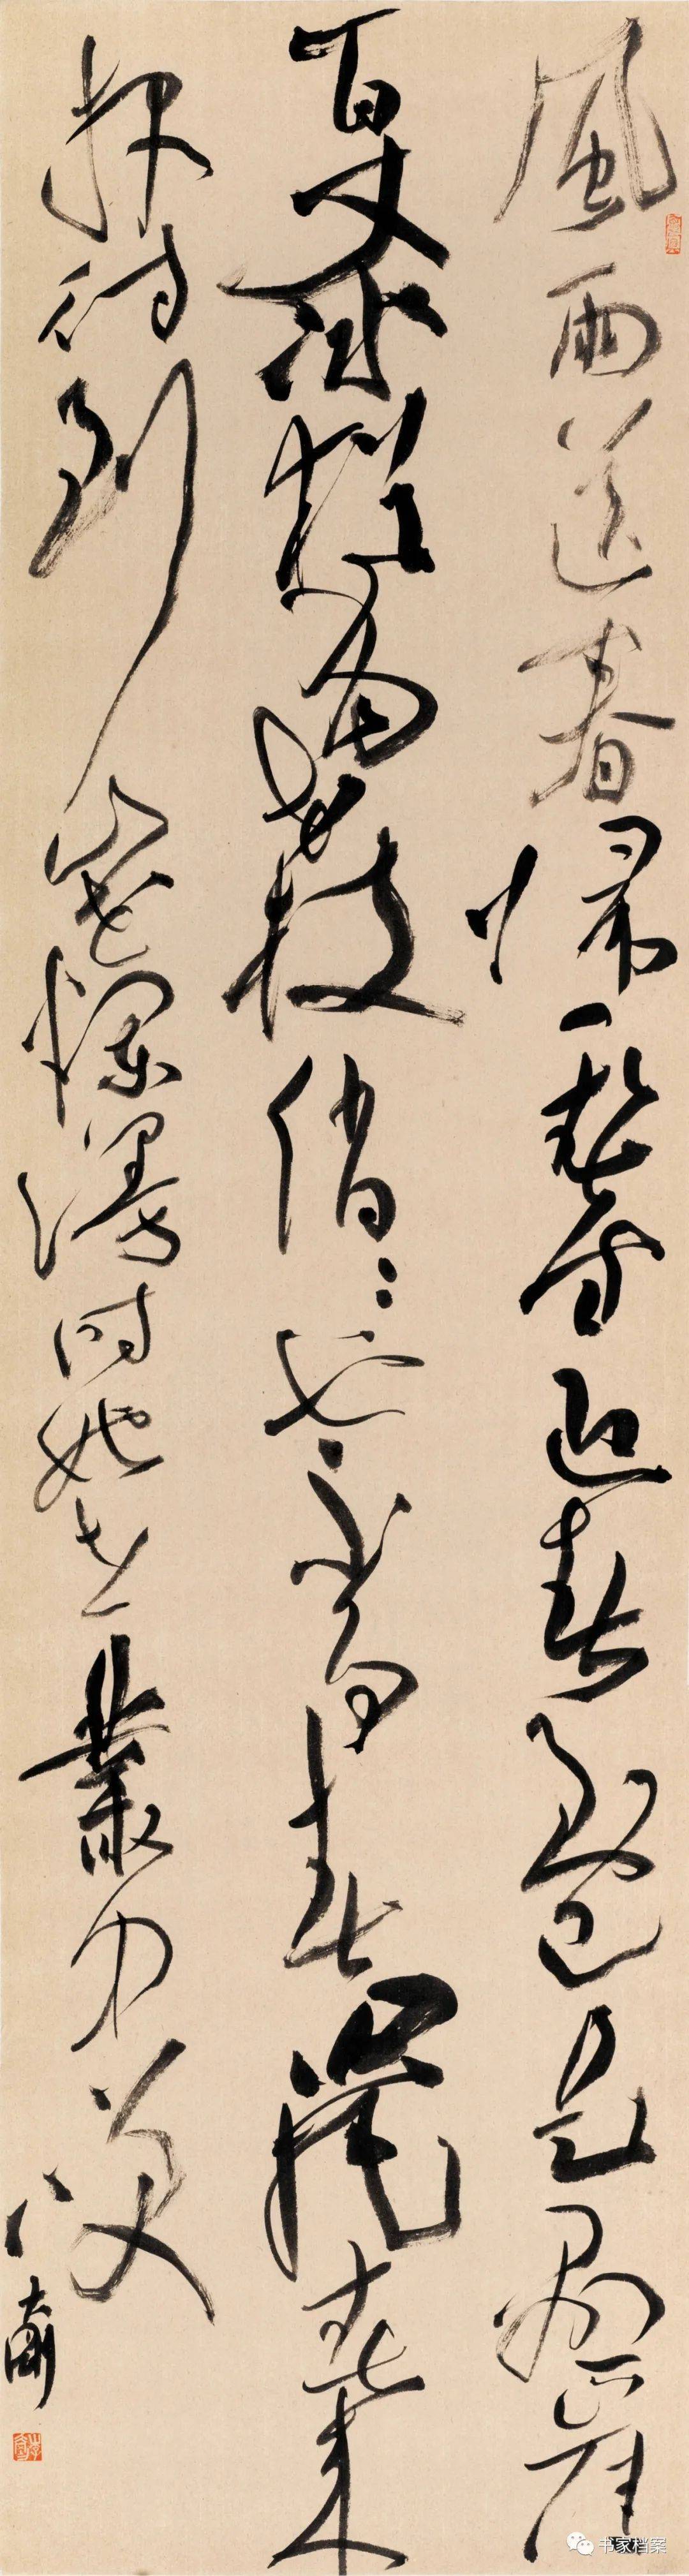 風雨送春歸飛雪迎春到已是懸崖
百丈冰猶有花枝俏俏也不爭春只把春來
報待到山花爛漫時她在叢中笑
书家档案